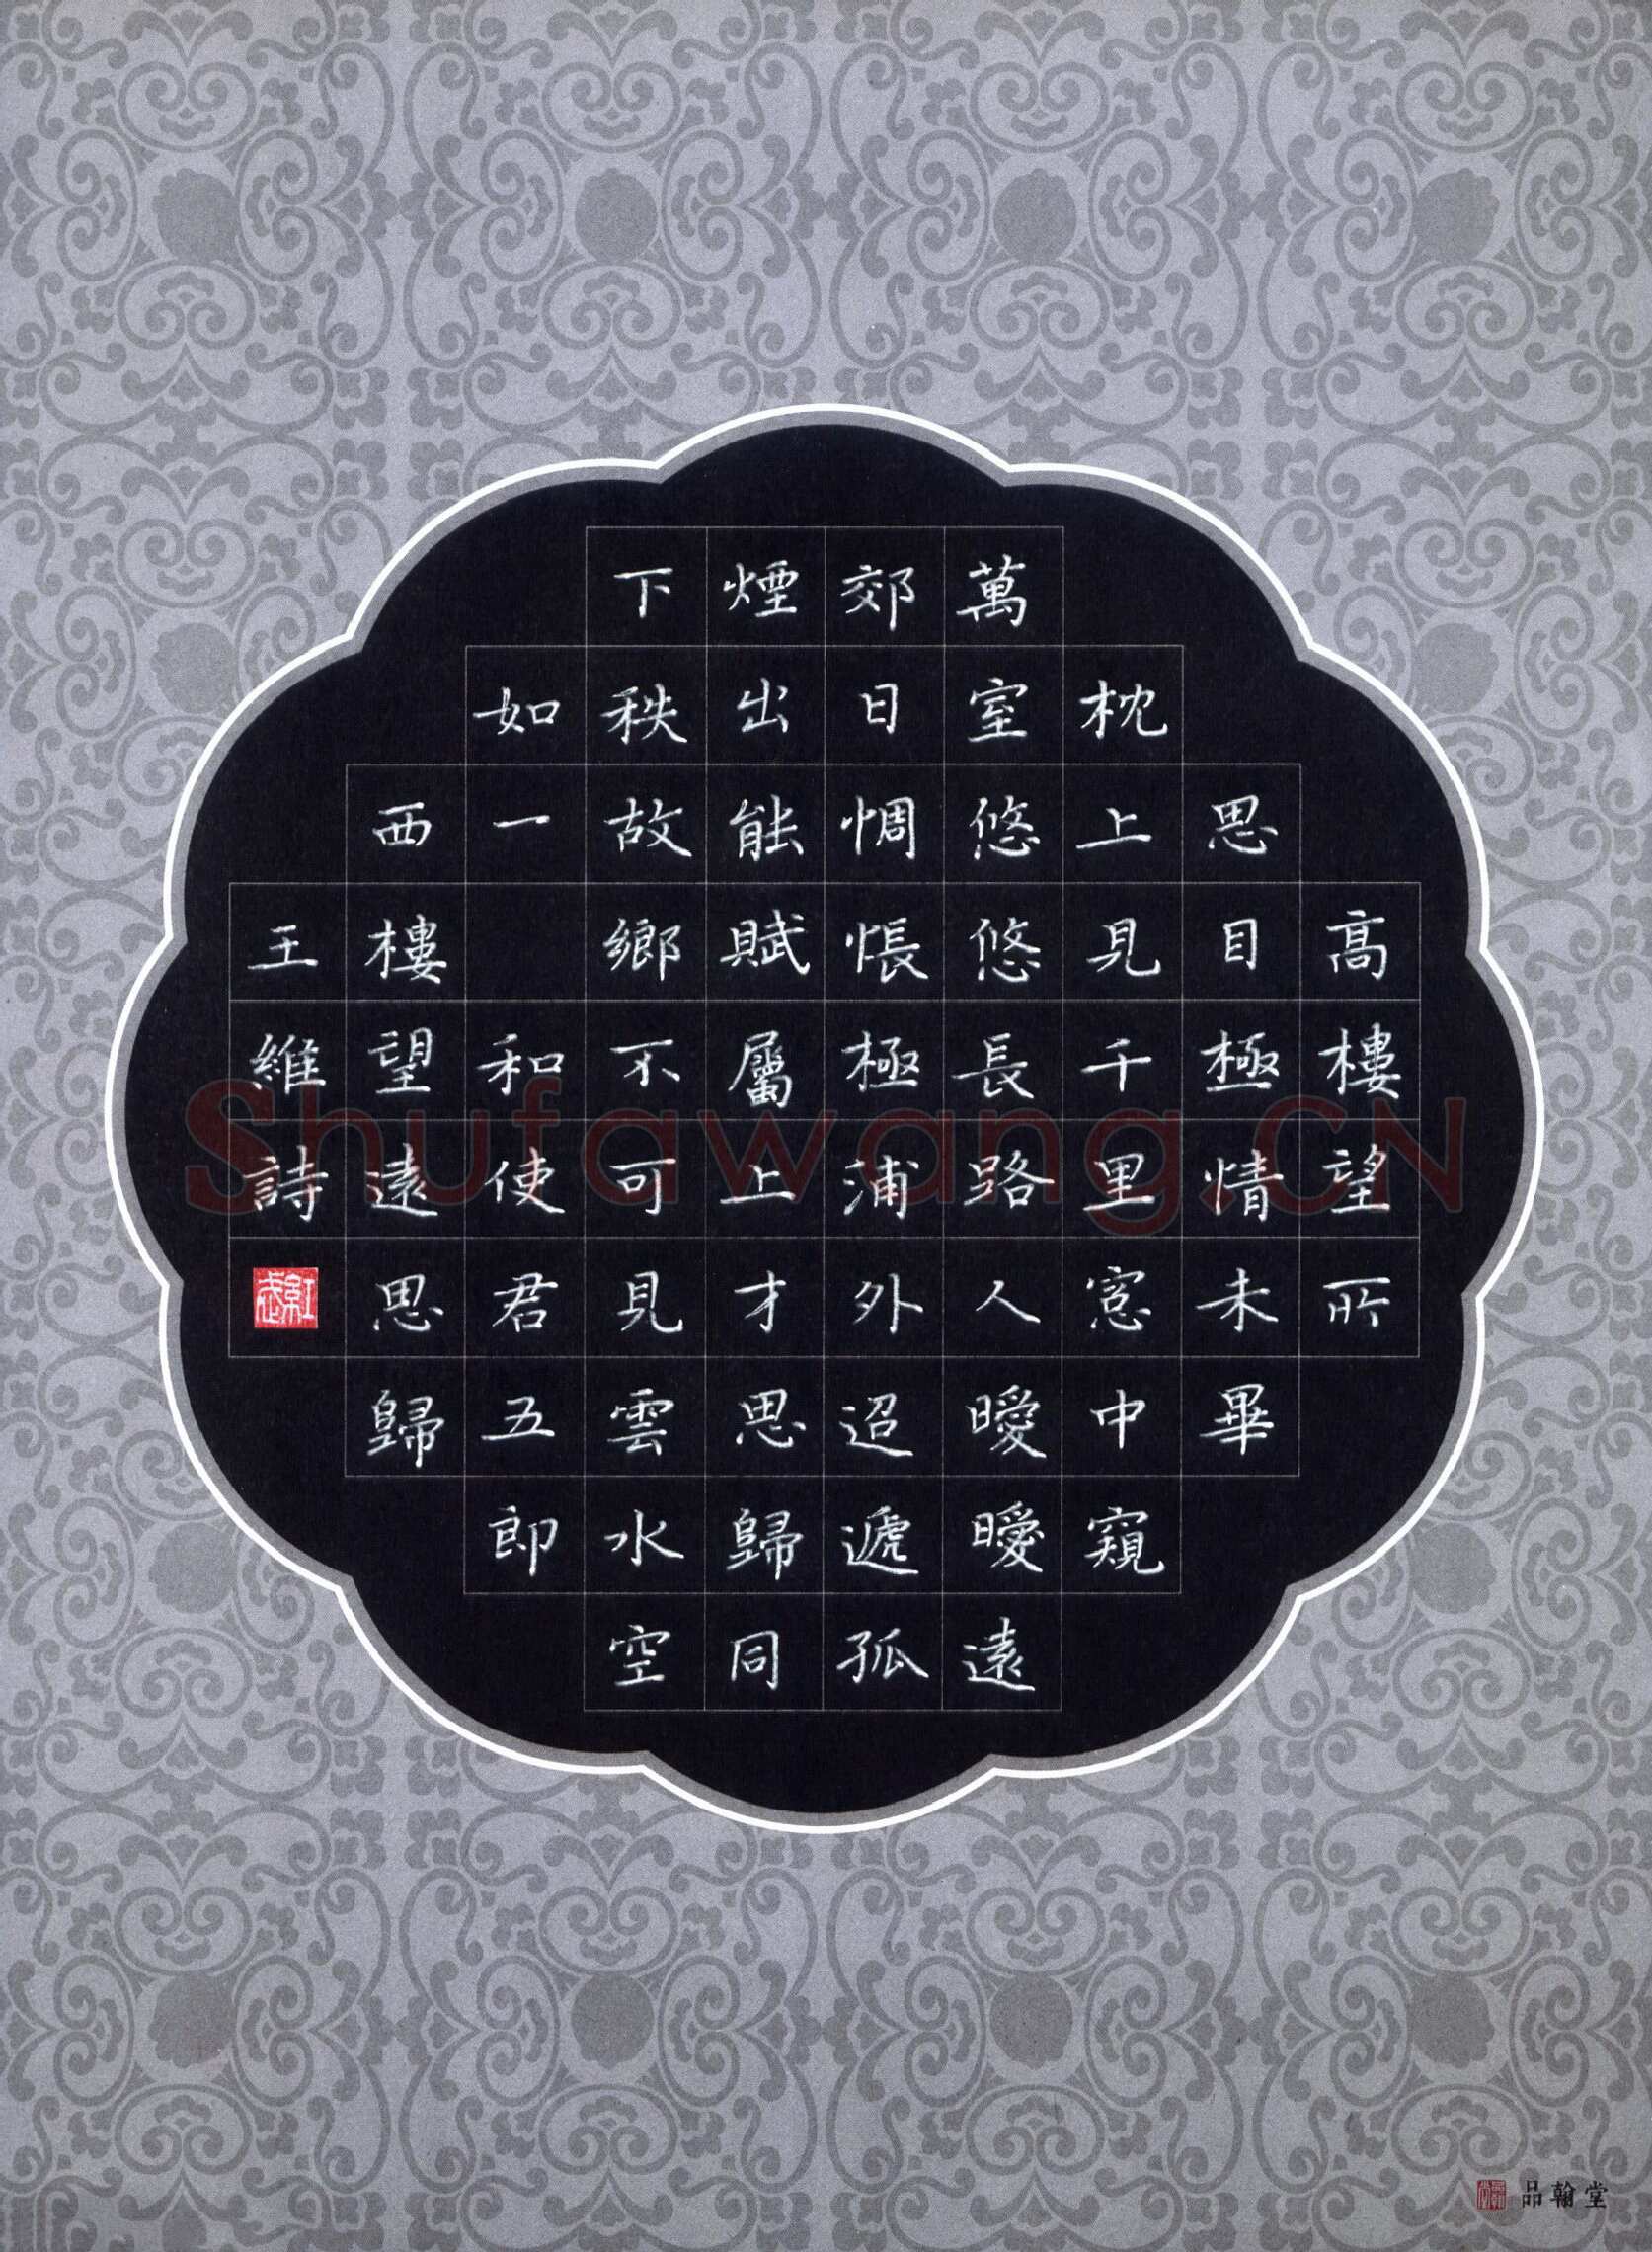 高樓望所
思目極情未畢
枕上見千里窓中窺
萬室悠悠長路人曖曖遠
郊日惆悵極浦外迢遞孤
煙出能賦屬上才思歸同
下秩故鄉不可見雲水空
如一 和使君五郎
西樓望遠思歸
王維詩
Shufawang.CN
品翰堂